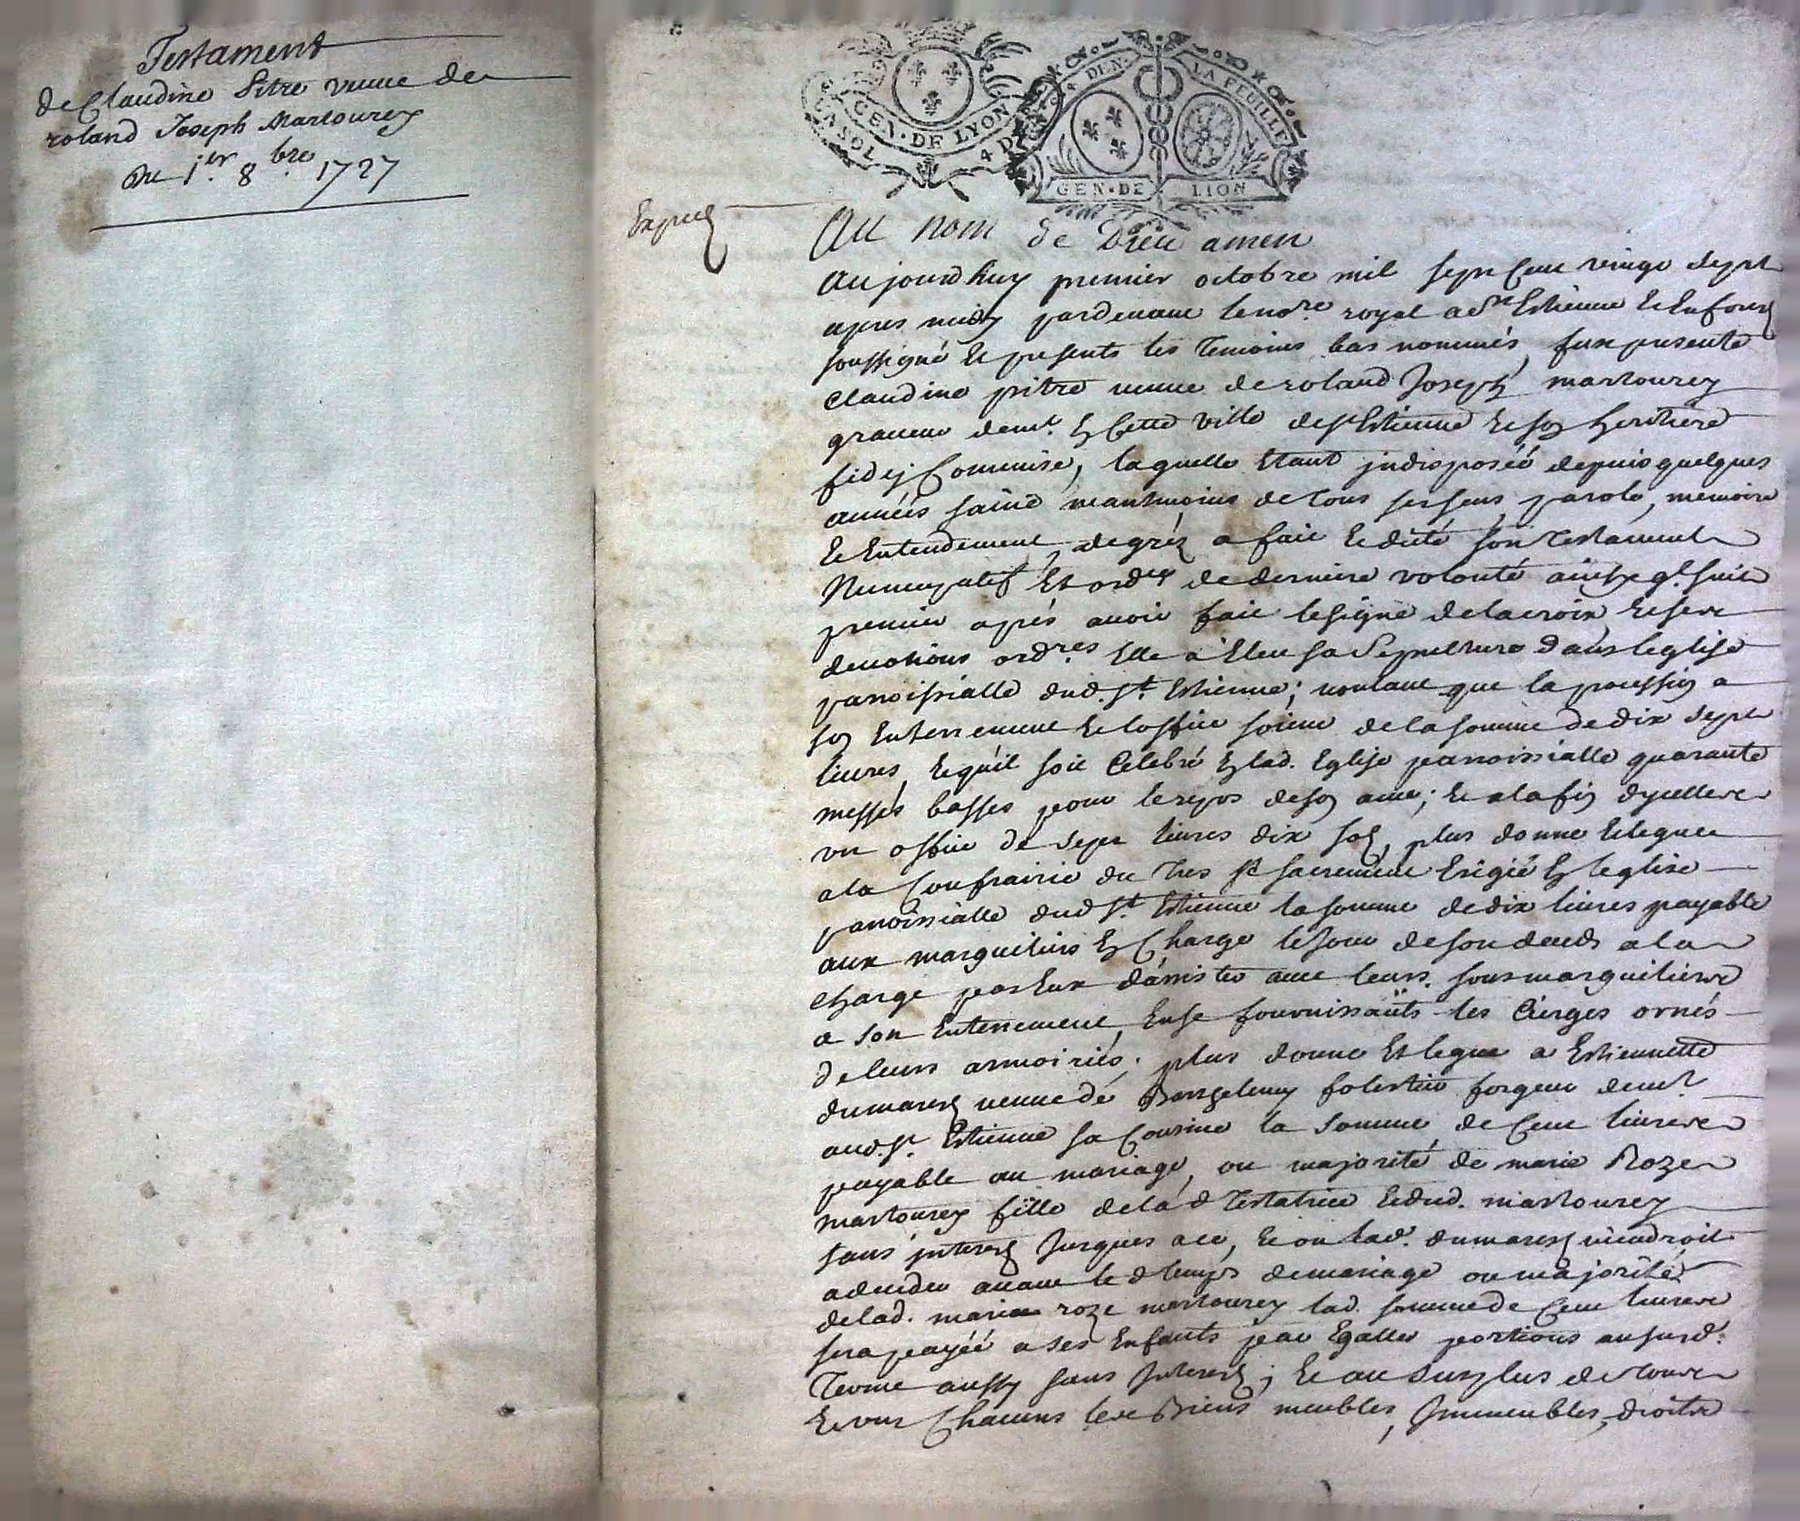 Testament
de Claudine Pitre veuve de
roland Joseph Martourey
Du 1.er 8.bre 1727
GEN·DE LYON
A SOL
4 D
DEN·
LA FEUILLE
GEN·DE LION
Expéd
Au nom de Dieu amen
Aujourdhuy premier octobre mil sept cent vingt sept
apres midy pardevant le no.re royal a S.t Estienne
soussigné et presents les temoins bas nommés, fut presente
Claudine pitre veuve de roland Joseph martourey
graveur demt. en cette ville de St Estienne et son heritiere
fideicommise, laquelle etant jndisposéé depuis quelques
annéés saine neantmoins de tous ses sens, parole, memoire
et entendement, de gréz a fait et dicté son testament
Nuncupatif et ordce de derniere volonté ainsy q.l suit
premier aprés avoir fait le signe de la croix et ses
devotions ord.res elle à eleu sa sepulture dans leglise
parroissialle dud. St. Estienne; voulant que la procession a
son enterrement et loffice soient de la somme de dix sept
livres, et quil soit celebré en lad. Eglise parroissialle quarante
messes basses pour le repos de son ame; et a la fin dycelles
un office de sept livres dix sols, plus donne et legue
a la Confrairie du tres St sacrement erigéé en leglise
parroissialle dud St. Estienne la somme de dix livres payable
aux marguiliers en charge le jour de son deceds a la
charge par eux dassister avec leurs sousmarguiliers
a son enterrement, en se fournissants les cierges ornés
de leurs armoiries; plus donne et legue a Estiennette
dumarest veuve de Barthelemy forgeur demt.
aud. St. Estienne sa cousine la somme de cent livres
payable au mariage, ou majorité de marie Roze
martourey fille de la d testatrice et dud. martourey
sans jnterest jusques a ce, et ou lad. dumarest viendroit
a deceder avant le d temps de mariage ou majorité
de lad. marie roze martourey lad. somme de cent livres
sera payéé a ses enfants par egalles portions au susd.
terme aussy sans jnterest; et au surplus de tous
et uns chacuns ses Biens meubles, jmmeubles, droits